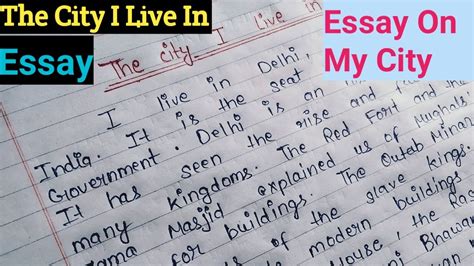 The City I Live In
Essay
Essay On
My City
The city I live in
I live in Delhi,
India. It is the seat
Government. Delhi is an
It has seen the rise and
many kingdoms. The Red Fort and
Masjid explained us of Mughals
for buildings. The Qutab Minar
of the slave kings.
of modern buildings.
House, the
Bhawan